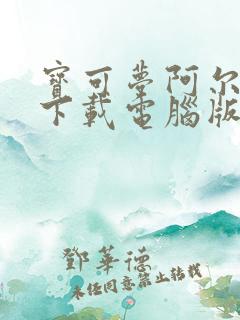 寶可夢阿尔
下載電腦版
鄧華德
未经同意禁止转载